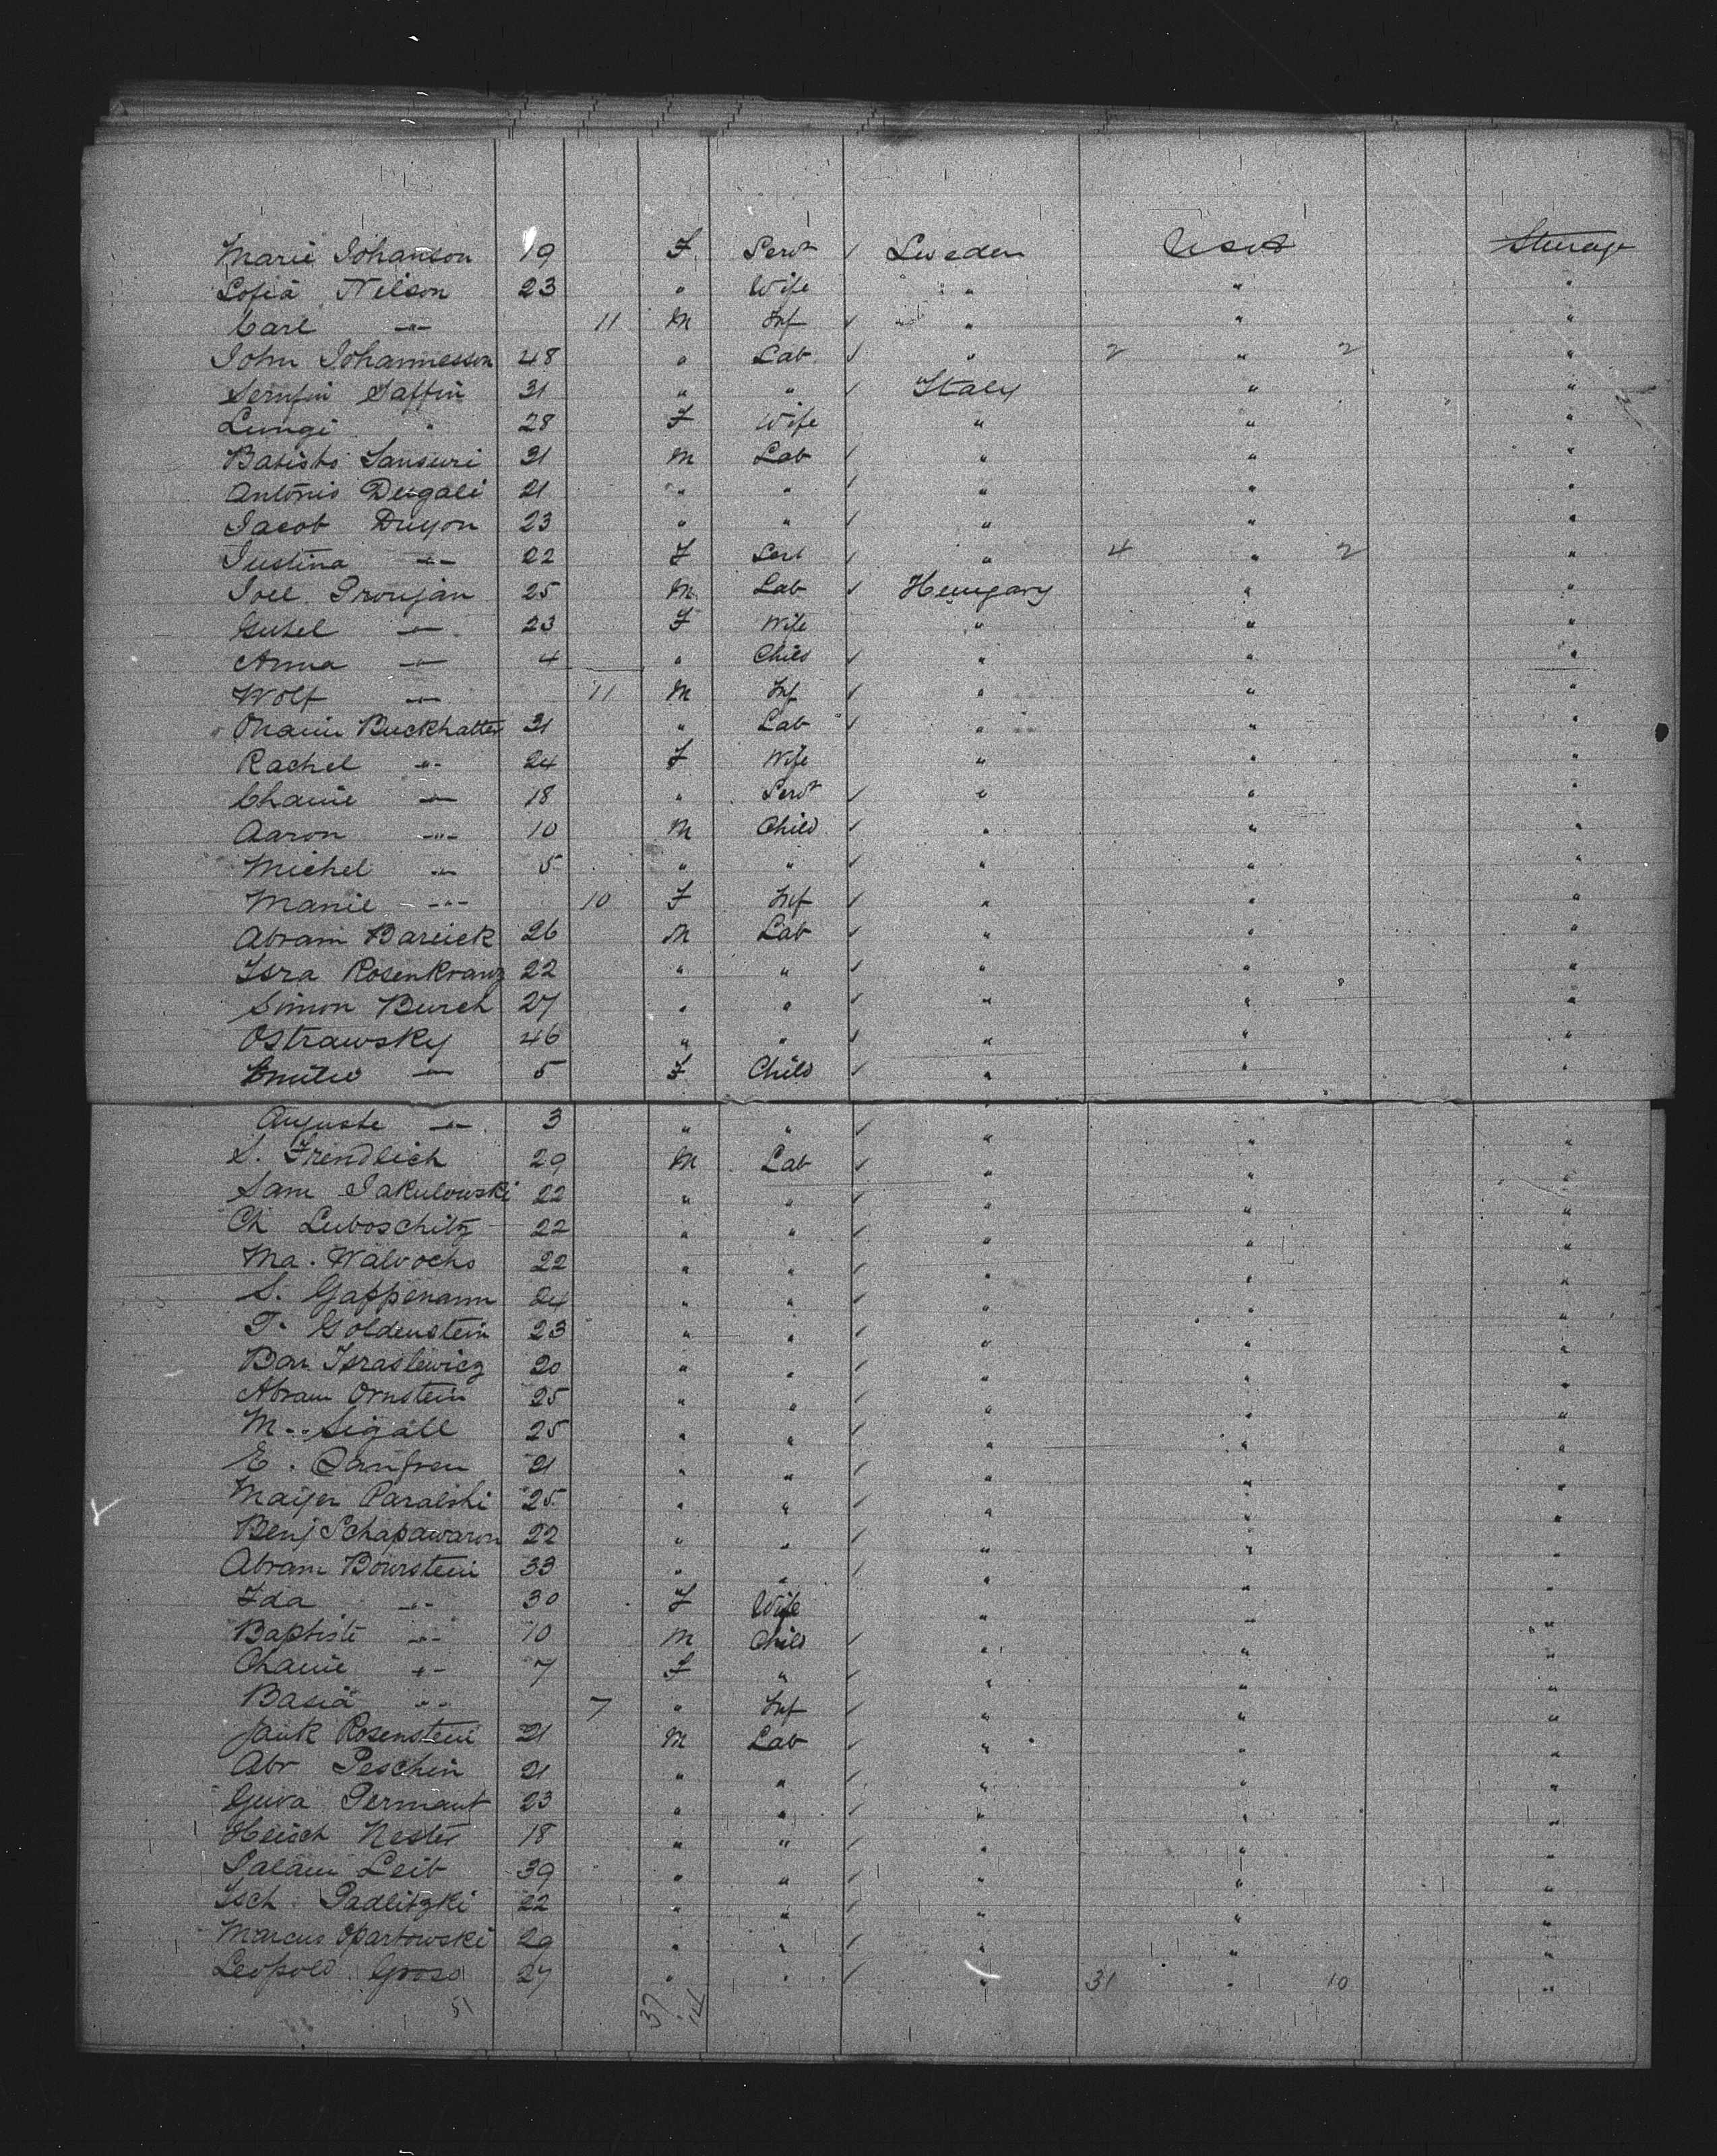 Marie Johanson 19 F Servt / Sweden USA Steerage
Sofia Nilson 23 " Wife " " "
Carl -"- 11 M Inf / " " "
John Johannesson 48 " Lab / " 2 " 2 "
Serufin Saffin 31 " " / Italy " "
Luingi " 28 F Wife " " "
Batisto Sansuri 31 M Lab / " " "
Antonio Deigali 21 " " / " " "
Jacob Duyon 23 " " / " " "
Justina -"- 22 F Servt / " 4 " 2 "
Joel Pronjan 25 M Lab / Hungary " "
Gutel -"- 23 F Wife " " "
Anna -"- 4 " Child / " " "
Wolf -"- 11 M Inf / " " "
Buckhalter 31 " Lab / " " "
Rachel -"- 24 F Wife " " "
Chanie -"- 18 " Servt / " " "
Aaron -"- 10 M Child / " " "
Michel -"- 5 " " / " " "
Manie -"- 10 F Inf / " " "
Abram Bareick 26 M Lab / " " "
Isra Rosenkranz 22 " " / " " "
Simon Burch 27 " " / " " "
Ostrawsky 46 " " / " " "
Emilie -"- 5 F Child / " " "
Auguste -"- 3 " " / " " "
S. Frendlich 29 M Lab / " " "
Sam Jakulowski 22 " " / " " "
Ch Luboschitz 22 " " / " " "
Ma. Walvochs 22 " " / " " "
S. Gappenann 24 " " / " " "
T. Goldenstein 23 " " / " " "
Bar Israslewicz 20 " " / " " "
Abram Ornstein 25 " " / " " "
M. Sigall 25 " " / " " "
E. 21 " " / " " "
Maijer Paralski 25 " " / " " "
Benj Schapawaron 22 " " / " " "
Abram Bournstein 33 " " / " " "
Ida -"- 30 F Wife " " "
Baptiste -"- 10 M Child / " " "
Chanie -"- 7 F " / " " "
Basia -"- 7 " Inf / " " "
Jank Rosenstein 21 M Lab / " " "
Abr Peschin 21 " " / " " "
Guva Permant 23 " " / " " "
Heisch Nester 18 " " / " " "
Salam Leib 39 " " / " " "
Isch. Padlitzki 22 " " / " " "
Marcus Opartowski 29 " " / " " "
Leopold Gross 27 " " / " 31 " 10 "
51 37 14